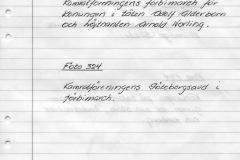 Kamratföreningens förbimarch för
konungen i täten Odolf Alderborn
och högtranten Arnold Norling.
Foto 324
Kamratföreningens Göteborgsavd i
förbimarch.